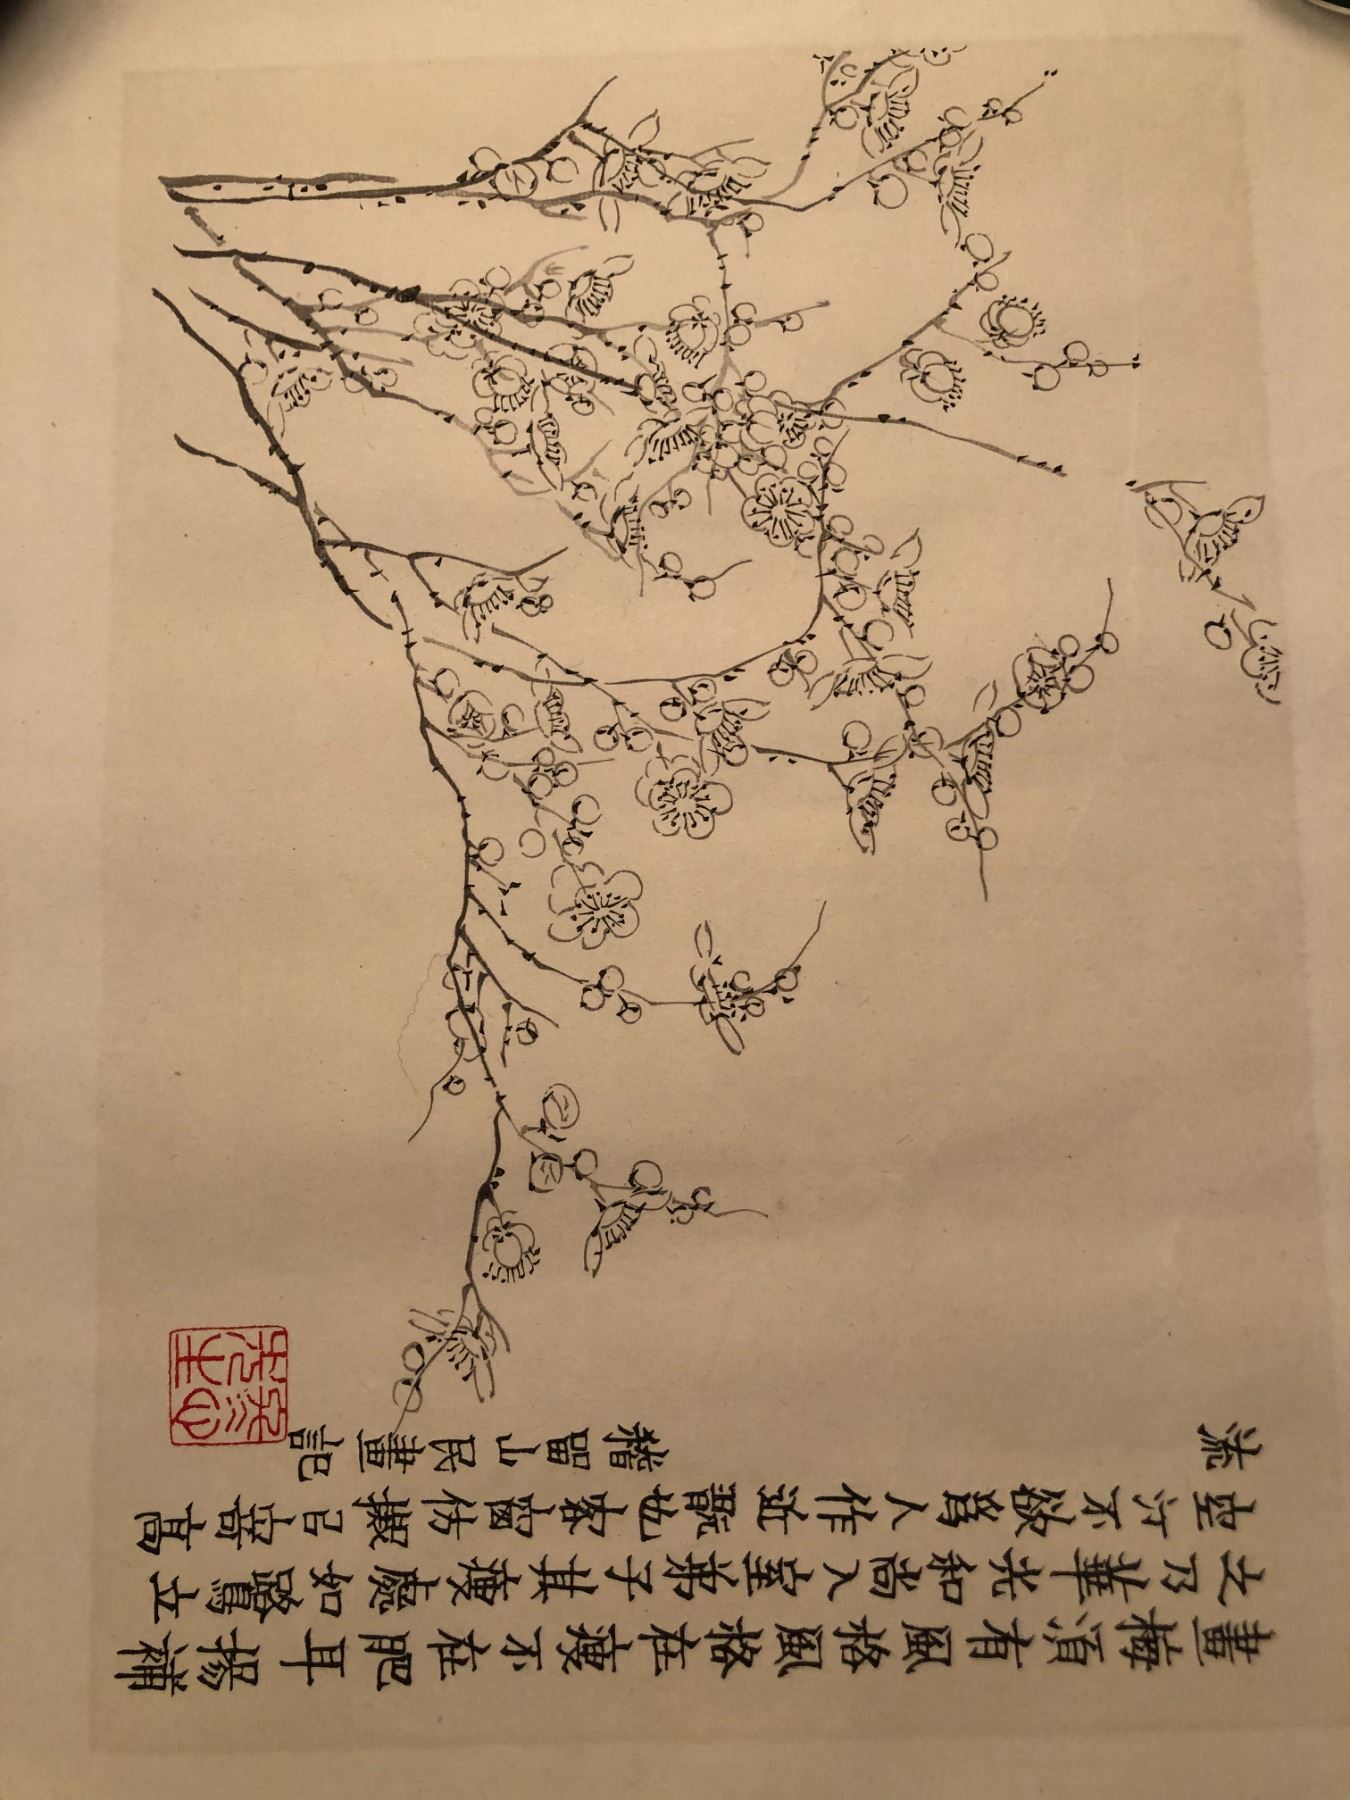 畫梅須有風格風格在瘦不在肥耳揚補
之乃華光和尚入室弟子其瘦處如鷺立
空汀不欲爲人作近翫也客窗仿擬己啻高
流
稽留山民畫記